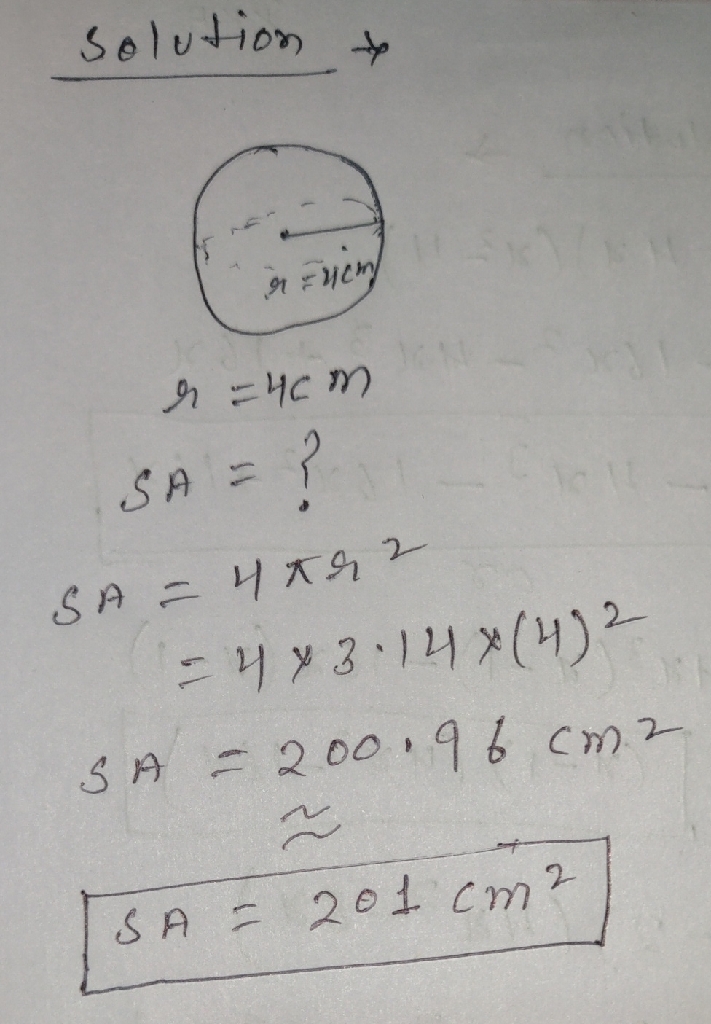 Solution →
r = 4cm
r = 4cm
SA = ?
SA = 4πr²
= 4 × 3.14 × (4)²
SA = 200.96 cm²
≈
SA = 201 cm²